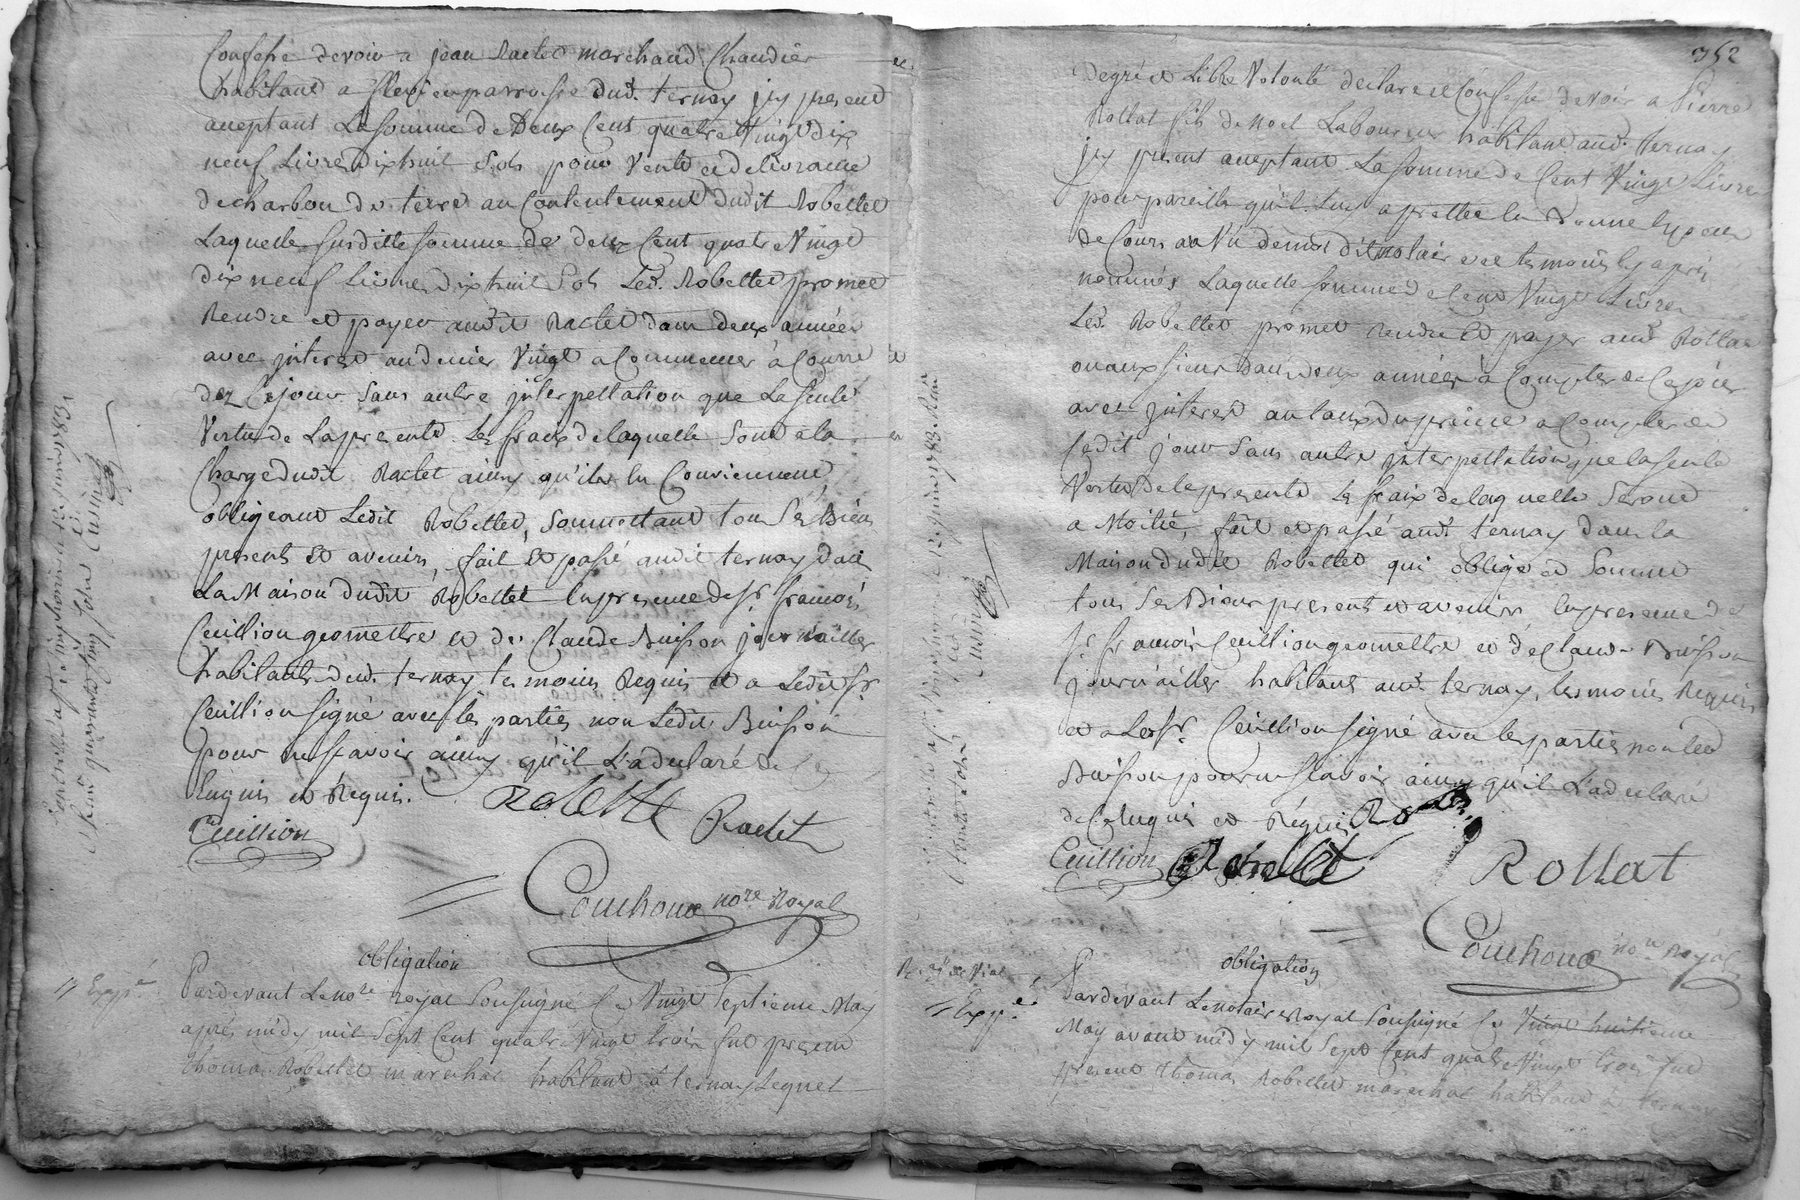 Confessé devoir a jean Ractet marchand Chaudier
habitant a parroisse dud. ternay jcy present
aceptant La somme de Deux Cent quatre Vingt dix
neuf Livres dix huit Sols pour Vente et delivrance
de charbon de terre au Contentement dudit Robettet
Laquelle susditte somme de deux Cent quatre Vingt
dix neuf Livres dix huit Sols Led. Robettet promet
Rendre et payer audit Ractet dans deux années
avec jnterest au denier Vingt a Commencer à Courre
dez Cejour Sans autre jnterpellation que La seule
Vertu de La presente Les fraix de laquelle Sont a la
Charge dudit Ractet ainsy qu'ils en Conviennent
obligeant Ledit Robettet, Soumettant tous Ses Biens
presents et avenirs, fait et passé audit ternay dans
La Maison dudit Robettet En presence de Sr. francois
Ceuillion geomettre et de Claude Buisson journailler
habitants dud. ternay temoins Requis et a Ledit Sr.
Ceuillion signé avec les parties non Ledit Buisson
pour ne scavoir ainsy qu'il L'a declaré de ce
Enquis et Requis.
Robettet Ractet
Ceuillion
Couchoud nore. Royal
obligation
1 Exp.é
Pardevant Le nore. royal Soussigné Ce Vingt Septieme May
après midy mil Sept Cent quatre Vingt trois fut present
thomas Robettet marechal habitant à ternay Lequel
352
de gré et Libre Volonté declare et Confesse devoir a Pierre
Rollat fils de noel Laboureur habitant aud. ternay
jcy present aceptant La somme de Cent Vingt Livres
pour pareille qu'il Luy a prettée En bonne Espece
de Cours au Vu de moi dit notaire et temoins Cy après
nommés Laquelle somme de Cent Vingt Livres
Led. Robettet promet rendre et payer aud. Rollat
ou aux siens dans deux années à Compter de Ce jour
avec jnterest au taux du prince a Compter de
Cedit jour Sans autre jnterpellation que la seule
Vertu de la presente Les fraix de laquelle Seront
a Moitié, fait et passé aud. ternay dans la
Maison dudit Robettet qui oblige et Soumet
tous Ses Biens presents et avenirs En presence de
Sr. francois Ceuillion geomettre et de Claude Buisson
journailler habitants aud. ternay, temoins Requis
et a Led. Sr. Ceuillion signé avec les parties non Led.
Buisson pour ne scavoir ainsy qu'il L'a declaré
de Ce Enquis et Requis
Ceuillion Robettet Rollat
Couchoud nore. Royal
obligation
1 Exp.é
Pardevant Le notaire Royal Soussigné Ce Vingt huitieme
May avant midy mil Sept Cent quatre Vingt trois fut
present thomas Robettet marechal habitant à ternay